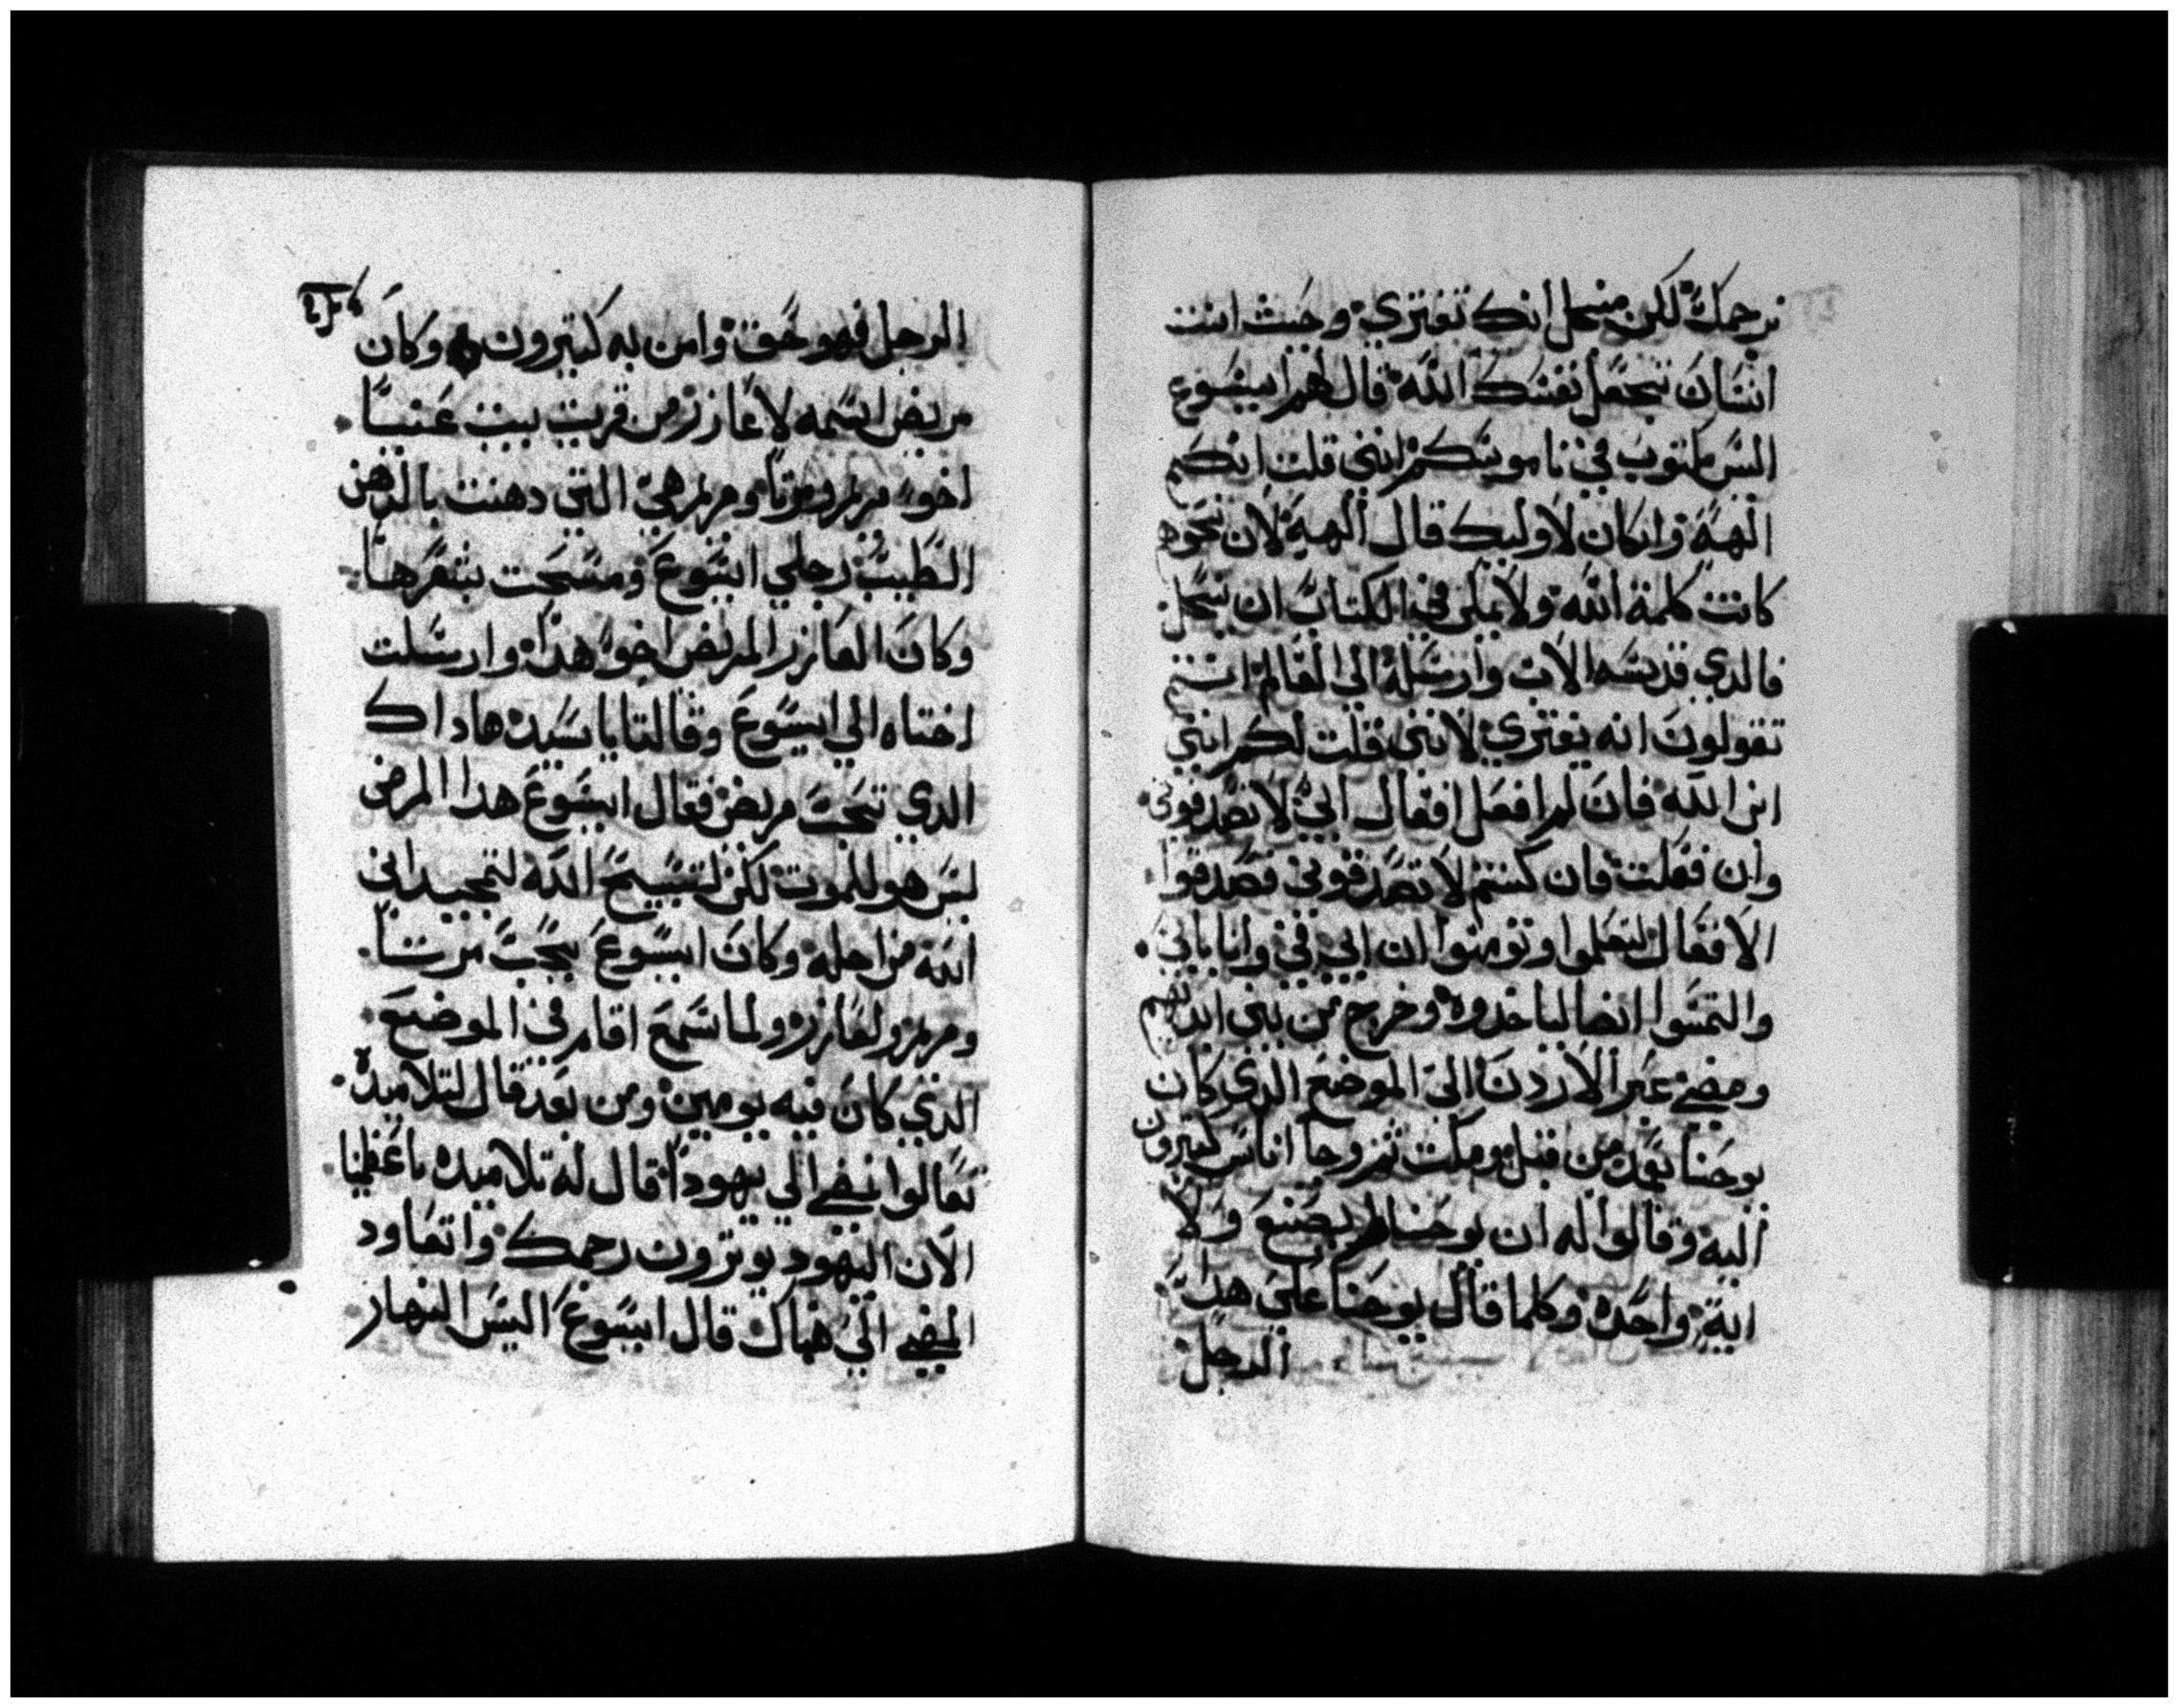 نرجمك لكن منجل انك تفتري وحيث انت
انسان تجعل نفسك الله قال لهم ايسوع
اليس مكتوب في ناموسكم انني قلت انكم
الهة وان كان لاوليك قال الهة لان نحوهم
كانت كلمة الله ولا يمكن في الكتاب ان ينحل
فالدي قدسه الاب وارسله الي العالم انتم
تقولون انه يفتري لانني قلت لكم انني
ابن الله فان لم افعل افعال ابي لا تصدقوني
وان فعلت فان كنتم لا تصدقوني فصدقوا
الافعال لتعلموا وتومنوا ان ابي في وانا بابي
والتمسوا ايضا لياخدوه وخرج من بين ايديهم
ومضي عبر الاردن الي الموضع الدي كان
يوحنا يعمد من قبل ومكت تم وجا اناس كتيرون
اليه وقالوا له ان يوحنا لم يصنع ولا
اية واحده وكلما قال يوحنا علي هدا
الرجل
الرجل فهو حق وامن به كتيرون وكان
مريض اسمه لاعازر من قرية بيت عنيا
اخو مريم ومرتا ومريم هي التي دهنت بالدهن
الطيب رجلي ايسوع ومسحت بشعرها
وكان العازر المريض اخو هدا وارسلت
اختاه الي ايسوع وقالتا يا سيد ها داك
الدي تحب مريض فقال ايسوع هدا المرض
ليس هو للموت لكن لتسبيح الله لتمجيد ابن
الله من اجله وكان ايسوع يحب مرتا
ومريم ولعازر ولما سمع اقام في الموضع
الدي كان فيه يومين ومن بعد قال لتلاميده
تعالوا نمضي الي يهودا قال له تلاميده يا عظيمنا
الان اليهود يوترون رجمك وا تعاود
المضي الي هناك قال ايسوع اليس النهار